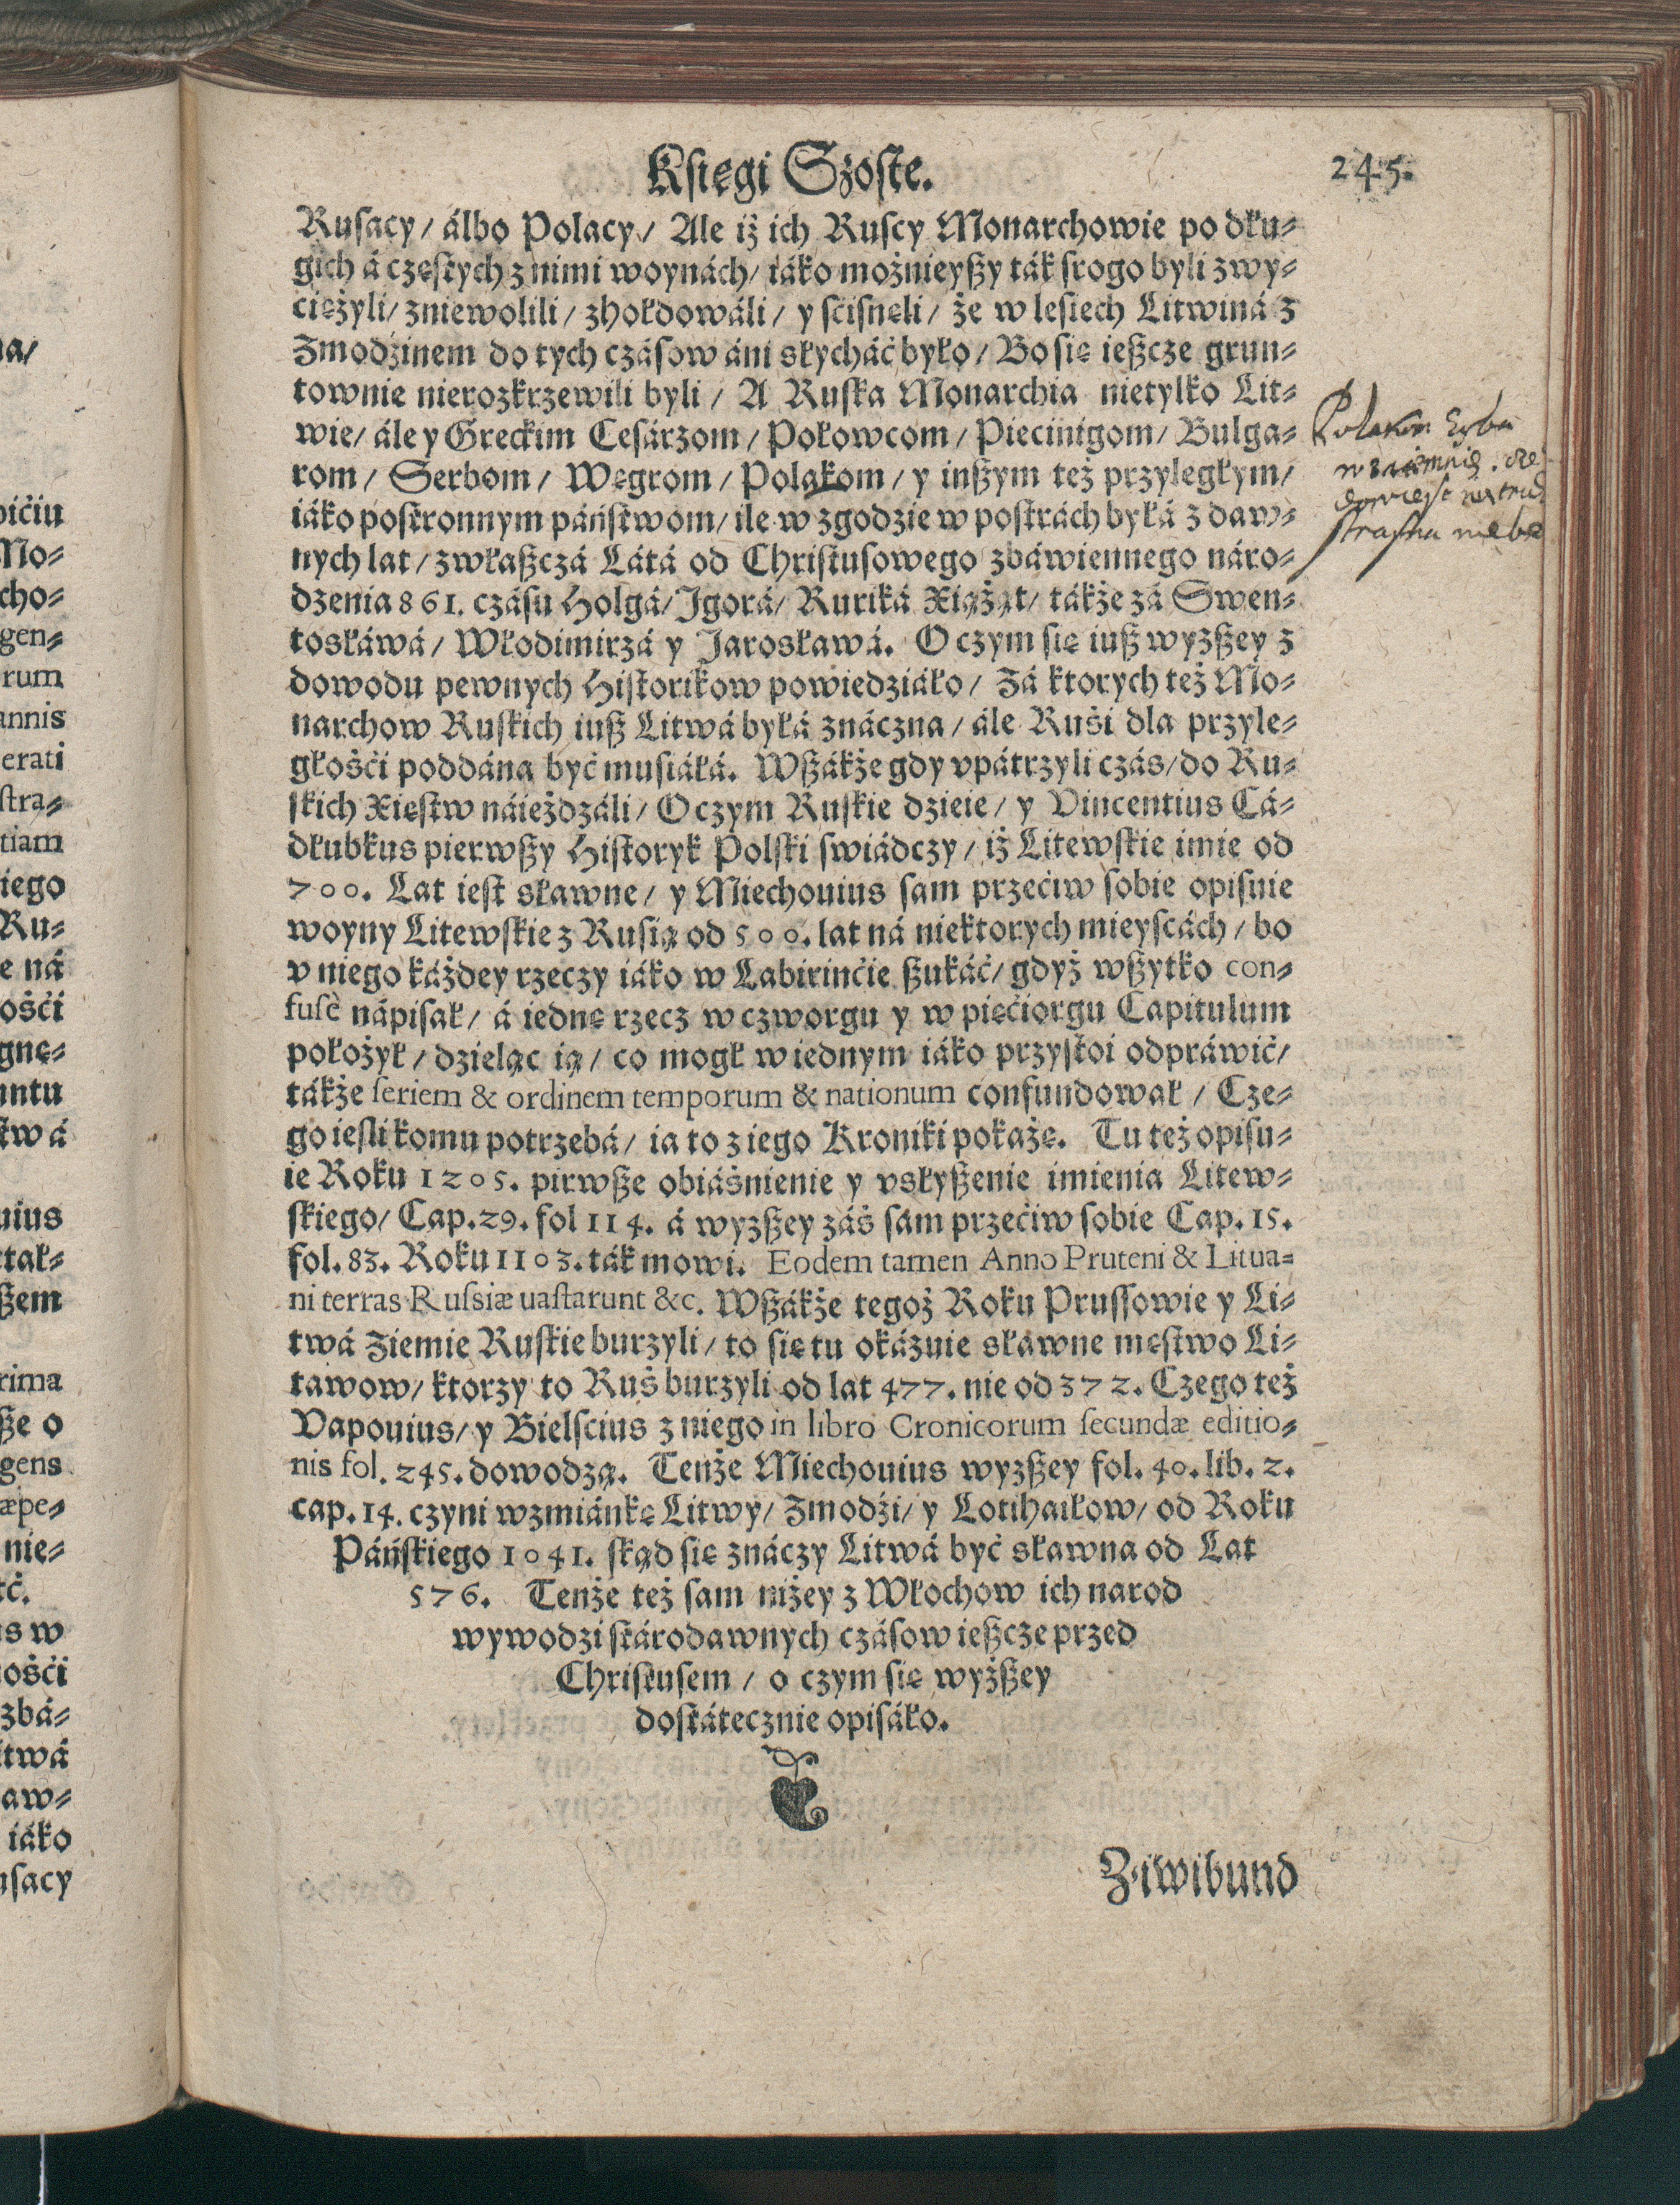 Księgi Szoste. 245.
Rusacy / álbo Polacy / Ale iż ich Ruscy Monarchowie po dłu⸗
gich á częstych z nimi woynách / iáko możnieyßy ták srogo byli zwy⸗
ciężyli / zniewolili / zhołdowáli / y scisnęli / że w lesiech Litwiná z
Zmodzinem do tych czásow áni słycháć było / Bo się ießcze grun⸗
townie nierozkrzewili byli / A Ruska Monarchia nietylko Lit⸗
wie / ále y Greckim Cesárzom / Połowcom / Piecinigom / Bulga⸗
rom / Serbom / Węgrom / Polakom / y inßym też przyległym /
iáko postronnym páństwom / ile w zgodzie w postrách byłá z daw⸗
nych lat / zwłaßczá Látá od Christusowego zbáwiennego náro⸗
dzenia 861. czásu Holgá / Jgorá / Ruriká Xiążąt / tákże zá Swen⸗
tosłáwá / Włodimirzá y Jarosławá. O czym się iuß wyzßey z
dowodu pewnych Historikow powiedziáło / Zá ktorych też Mo⸗
narchow Ruskich iuß Litwá byłá znáczna / ále Ruśi dla przyle⸗
głośći poddána być musiáłá. Wßákże gdy vpátrzyli czás / do Ru⸗
skich Xięstw náieżdzáli / O czym Ruskie dzieie / y Vincentius Cá⸗
dłubkus pierwßy Historyk Polski swiádczy / iż Litewskie imie od
700. Lat iest sławne / y Miechouius sam przećiw sobie opisuie
woyny Litewskie z Rusią od 500. lat ná niektorych mieyscách / bo
v niego káżdey rzeczy iáko w Labirinćie ßukáć / gdyż wßytko con⸗
fusè nápisał / á iednę rzecz w czworgu y w pięćiorgu Capitulum
położył / dzieląc ią / co mogł w iednym iáko przystoi odpráwić /
tákże seriem & ordinem temporum & nationum confundował / Cze⸗
go iesli komu potrzebá / ia to z iego Kroniki pokażę. Tu też opisu⸗
ie Roku 1205. pirwße obiáśnienie y vsłyßenie imienia Litew⸗
skiego / Cap. 29. fol 114. á wyzßey záś sám przećiw sobie Cap. 15.
fol. 83. Roku 1103. ták mowi. Eodem tamen Anno Pruteni & Litua⸗
ni terras Russiæ uastarunt &c. Wßákże tegoż Roku Prussowie y Li⸗
twá Ziemię Ruskie burzyli / to się tu okázuie sławne męstwo Li⸗
tawow / ktorzy to Ruś burzyli od lat 477. nie od 372. Czego też
Vapouius / y Bielscius z niego in libro Cronicorum secundæ editio⸗
nis fol. 245. dowodzą. Tenże Miechouius wyzßey fol. 40. lib. 2.
cap. 14. czyni wzmiánkę Litwy / Zmodźi / y Lotihaiłow / od Roku
Páńskiego 1041. skąd się znáczy Litwá być sławna od Lat
576. Tenże też sam niżey z Włochow ich narod
wywodzi stárodawnych czásow ießcze przed
Christusem / o czym się wyżßey
dostátecznie opisáło.
Ziwibund
na/
bićiu
Mo⸗
cho⸗
gen⸗
rum
annis
erati
stra⸗
tiam
iego
Ru⸗
e ná
ośći
gnę⸗
untu
stwá
uius
ctał⸗
ßem
rima
ße o
gens
æpe⸗
nie⸗
ć.
s w
ośći
zbá⸗
itwá
aw⸗
iáko
usacy